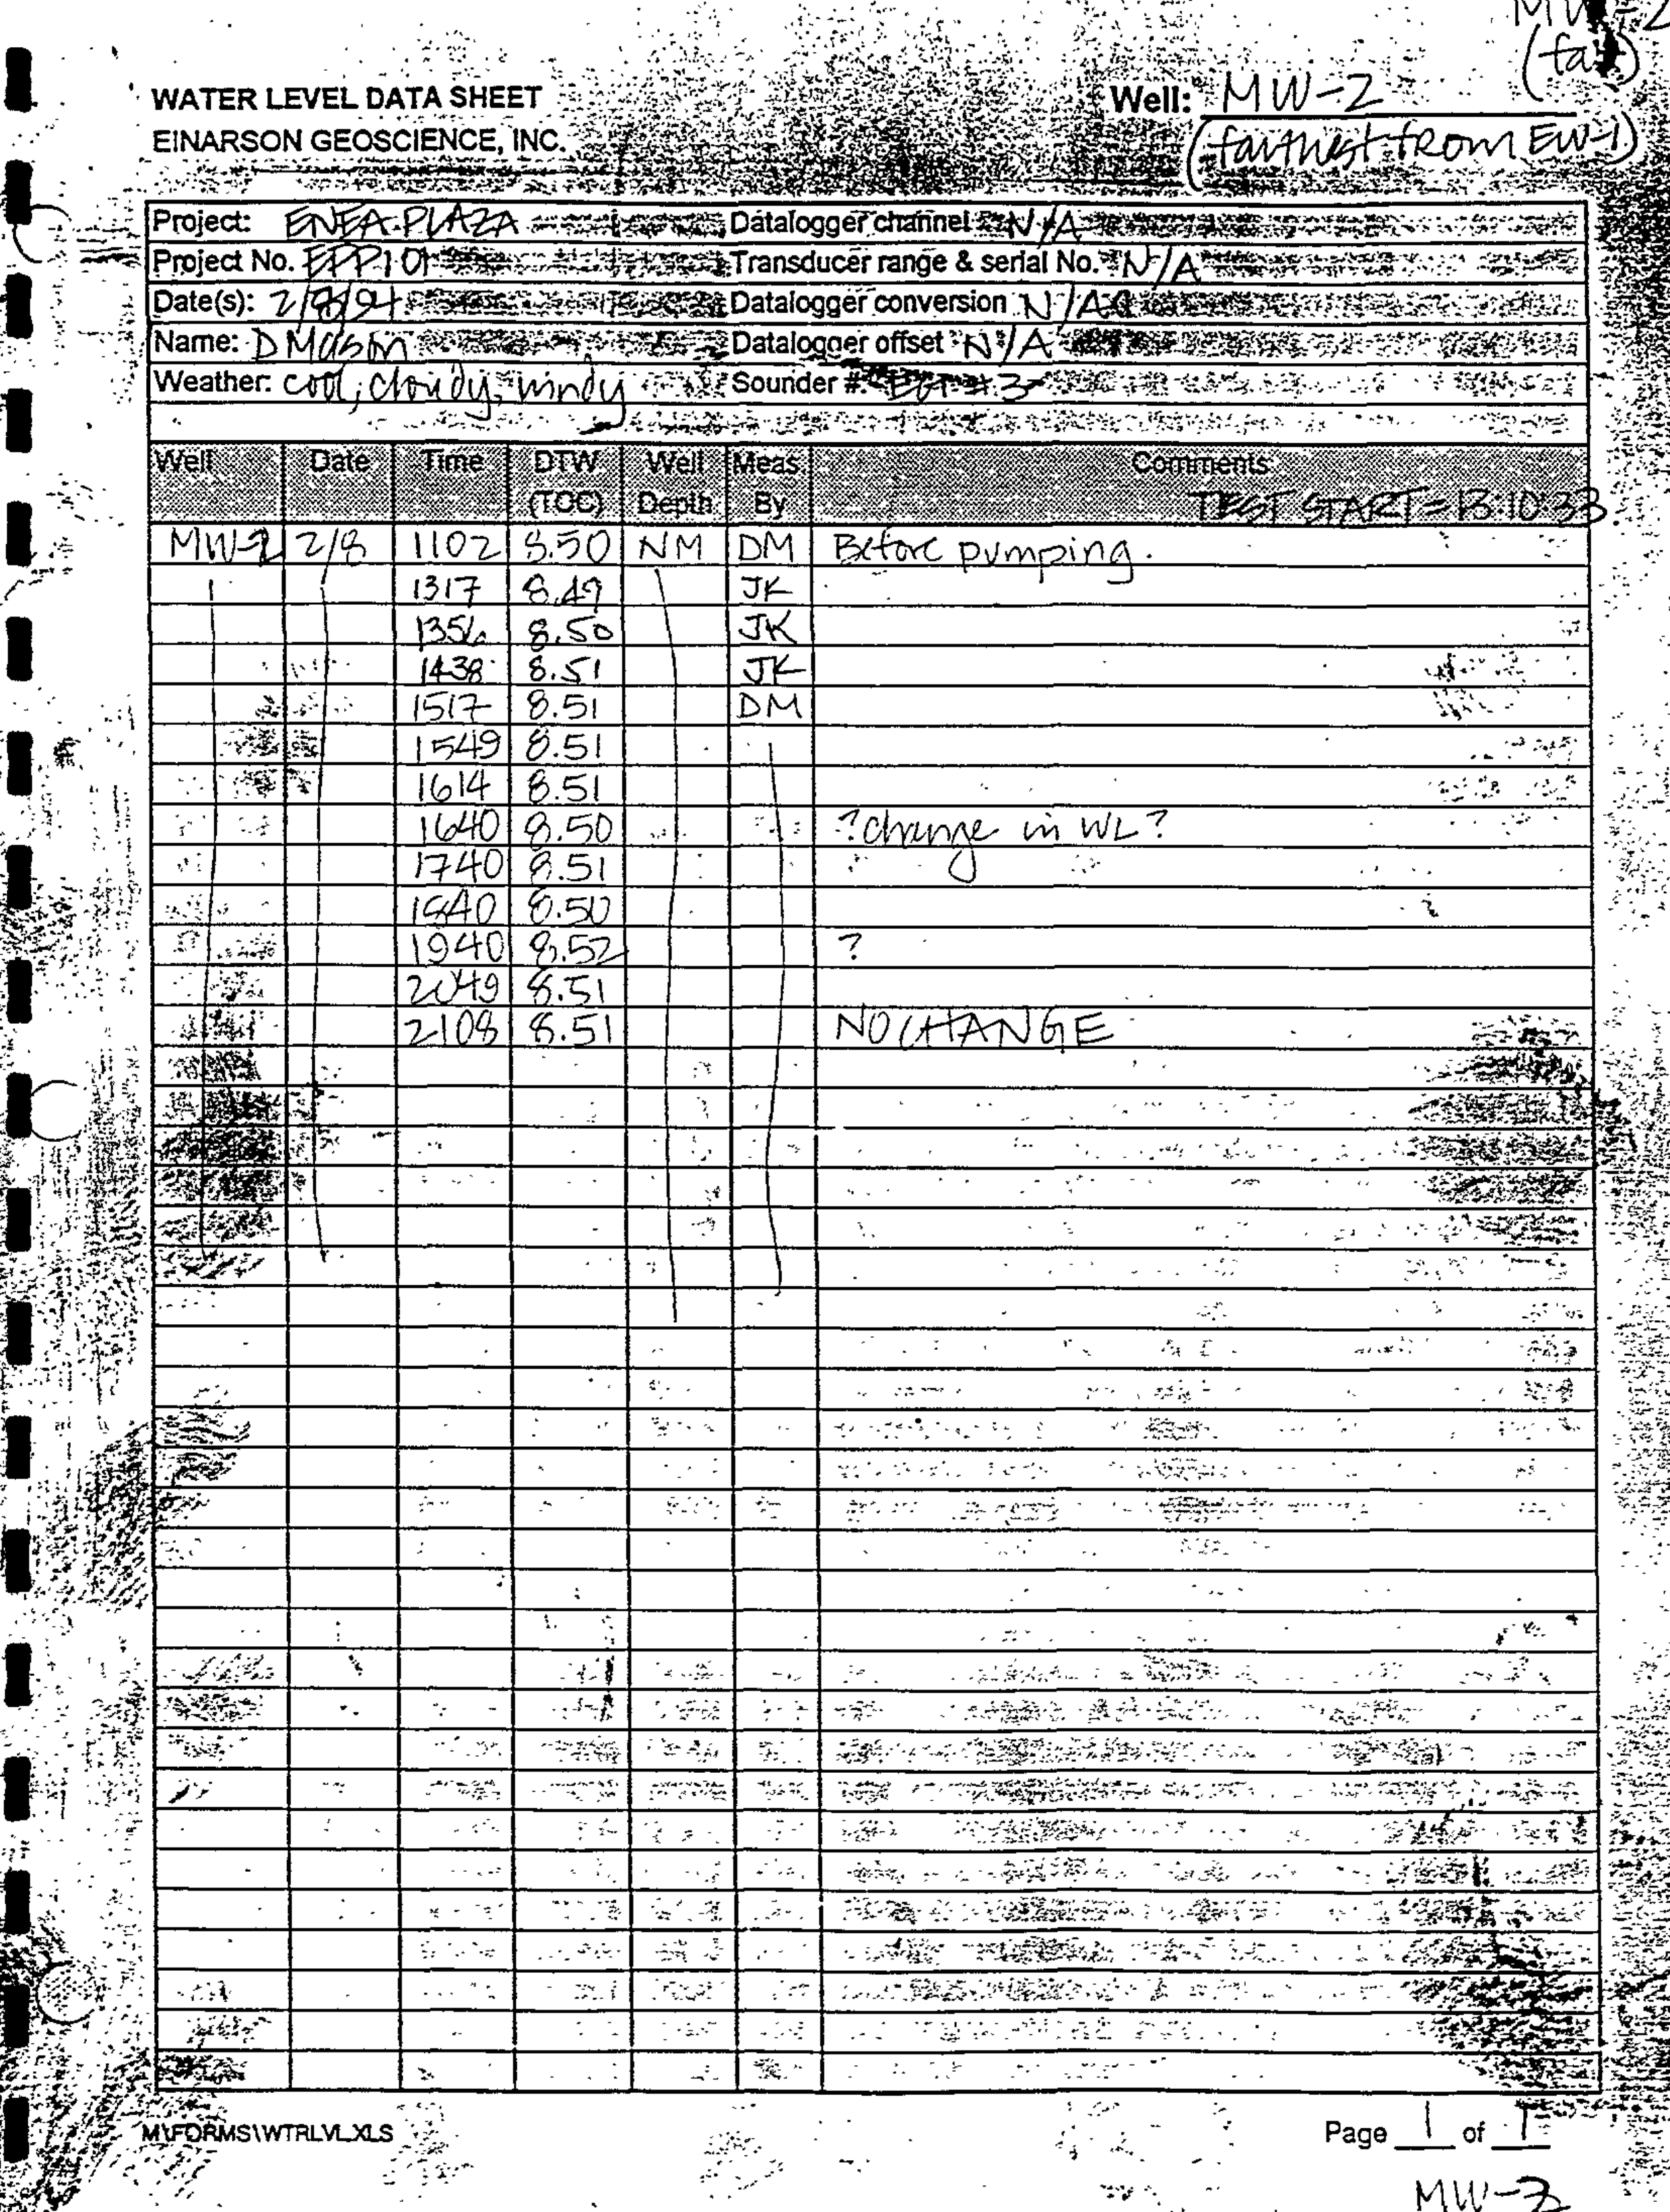 MW-2
(far)
WATER LEVEL DATA SHEET
Well: MW-2
EINARSON GEOSCIENCE, INC.
(farthest from EW-1)
Project: ENEA PLAZA Datalogger channel N/A
Project No. EPP101 Transducer range & serial No. N/A
Date(s): 2/8/94 Datalogger conversion N/A
Name: D Mason Datalogger offset N/A
Weather: cool, cloudy, windy Sounder #: #3
Well Date Time DTW (TOC) Well Depth Meas By Comments
TEST START = 13:10:33
MW-2 2/8 1102 8.50 NM DM Before pumping.
1317 8.49 JK
1356 8.50 JK
1438 8.51 JK
1517 8.51 DM
1549 8.51
1614 8.51
1640 8.50 ? change in WL?
1740 8.51
1840 8.50
1940 8.52 ?
2049 8.51
2108 8.51 NO CHANGE
M\FORMS\WTRLVL.XLS
Page 1 of 1
MW-2